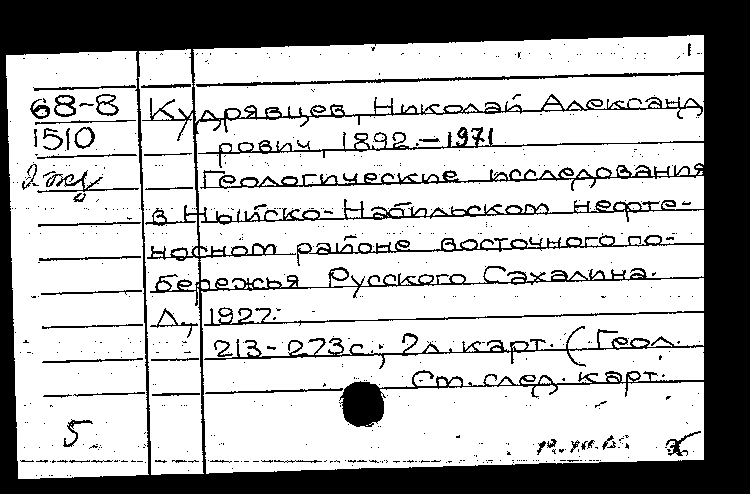 68-8 Кудрявцев, Николай Александ
1510 рович, 1892.-1971
2 Геологические исследования
в Ныйско-Набильском нефте-
носном районе восточного по-
бережья Русского Сахалина.
Л., 1927.
213-273 с.; 2 л. карт. (Геол.
См. след. карт.
5